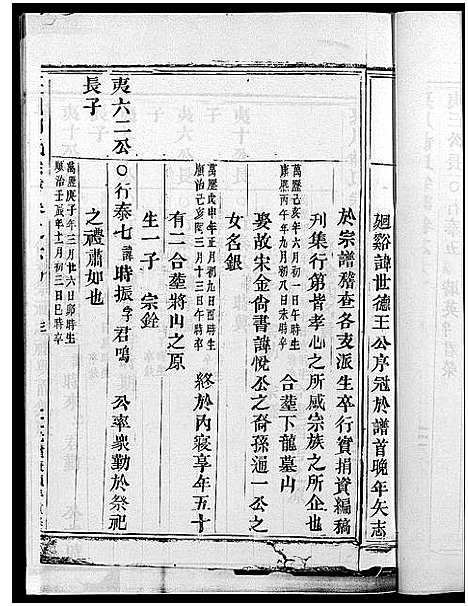 廻谿諱世德王公序冠於譜首晚年矢志
於宗譜稽查各支派生卒行實捐資編稿
刋集行第皆孝心之所感宗族之所企也
萬曆己亥年六月初一日午時生
康熙丙午年九月初八日未時卒
合塟下龍墓山
娶故宋金尚書諱悅公之裔孫遹一公之
女名銀
萬曆戊申年五月初九日酉時生
順治己亥年三月十三日午時卒
終於内寢享年五十
有二合塟將山之原
生一子 宗銓
夷六二公○行泰七諱時振字君鳴 公率衆勤於祭祀
長子
之禮肅如也
萬曆庚子年三月廿六日卯時生
順治壬辰年十一月初三日巳時卒